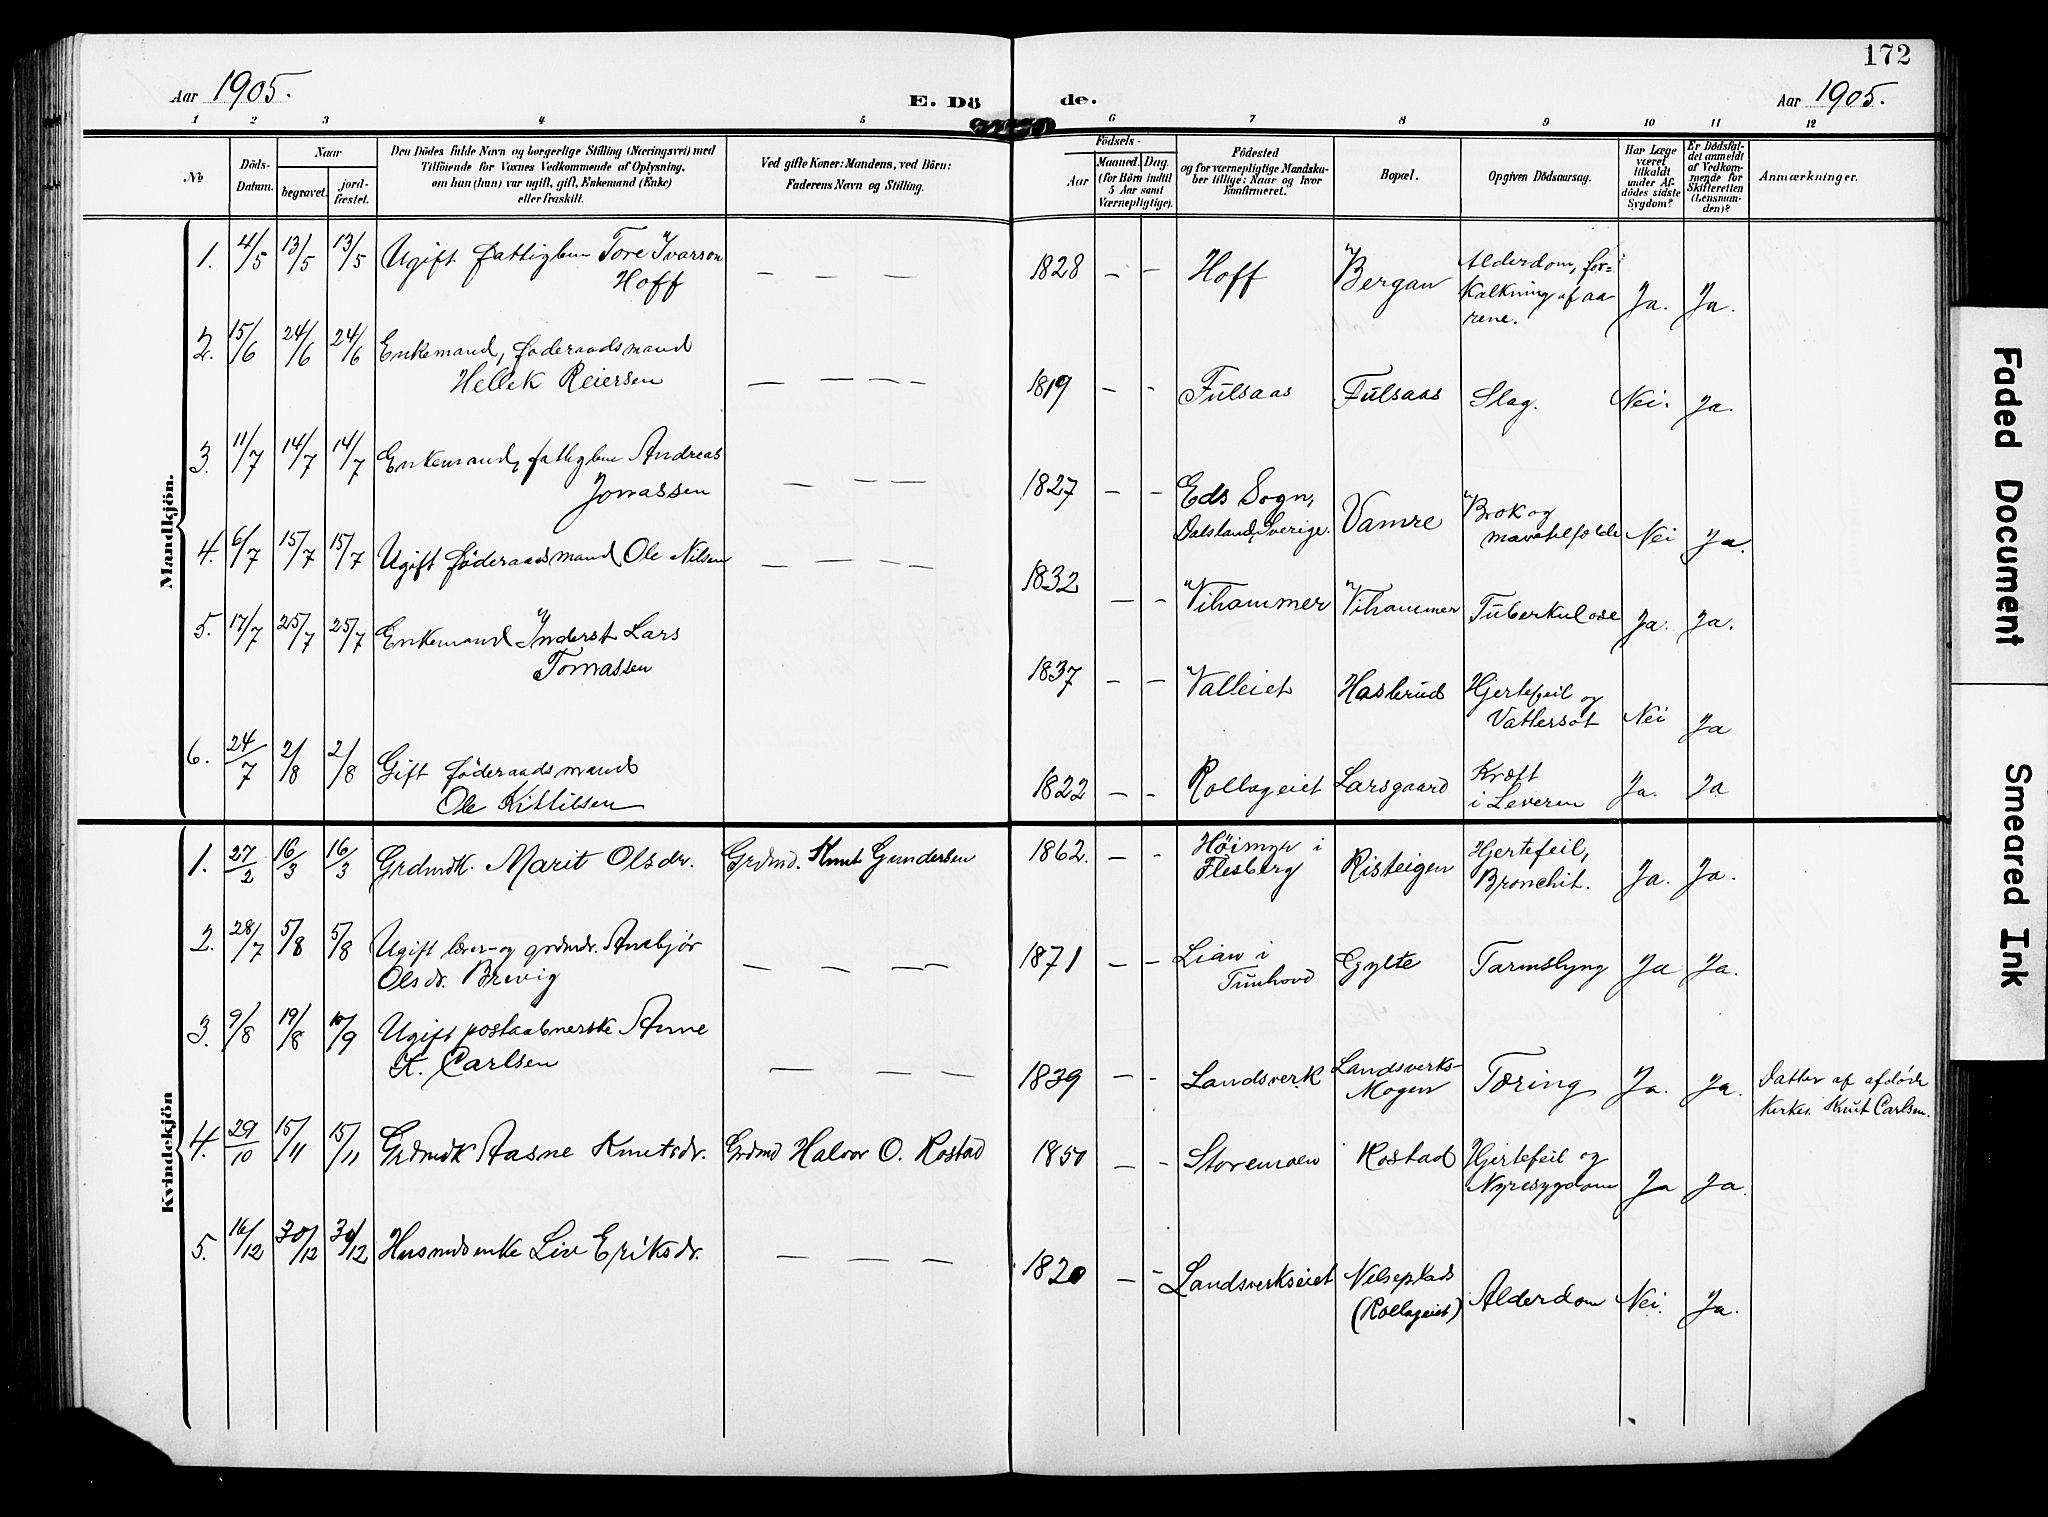 172
Aar 1905.
E. Dö de.
Aar 1905.
1 2 3 4 5 6 7 8 9 10 11 12
No
Döds-
Datum.
Naar
begravet.
jord-
fæstet.
Den Dödes fulde Navn og borgerlige Stilling (Næringsvei) med
Tilföiende for Voxnes Vedkommende af Oplysning,
om han (hun) var ugift, gift, Enkemand (Enke)
eller fraskilt.
Ved gifte Koner: Mandens, ved Börn:
Faderens Navn og Stilling.
Födsels-
Aar
Maaned. Dag.
(for Börn indtil
5 Aar samt
Værnepligtige).
Födested
og for værnepligtige Mandska-
ber tillige: Naar og hvor
konfirmeret.
Bopæl.
Opgiven Dödsaarsag.
Har Læge
været
tilkaldt
under Af-
dödes sidste
Sygdom?
Er Dödsfal-
det anmeldt
af Vedkom-
mende for
Skifteretten
(Lensman-
den)?
Anmærkninger.
Mandkjön.
1. 4/5 13/5 13/5 Ugift fattiglem Tore Ivarson
Hoff
— — —
1828 — — Hoff Bergan Alderdom, for-
kalkning af aa
rene.
Ja. Ja.
2. 15/6 24/6 24/6 Enkemand, föderaadsmand
Hellek Reiersen
— — — —
1819 — — Fulsaas Fulsaas Slag. Nei. Ja.
3. 11/7 14/7 14/7 Enkemand, fattiglem Andreas
Jonassen
— — —
1827 — — Eds Sogn,
Dalsland, Sverige.
Vamre Brok og
mavetilfælde
Nei Ja.
4. 6/7 15/7 15/7 Ugift föderaadsmand Ole Nilsen
— — — —
1832 — — Vihammer Vihammer Tuberkulose Ja. Ja.
5. 17/7 25/7 25/7 Enkemand Inderst Lars
Tomassen
1837 — — Valleiet Hasbrud Hjertefeil og
Vattersot
Nei Ja
6. 24/7 2/8 2/8 Gift föderaadsmand
Ole Kittilsen
1822 — — Rollageiet Larsgaard Kræft
i Leveren
Ja. Ja
Kvindekjön
1. 27/2 16/3 16/3 Grdmdk. Marit Olsdr. Grdmd. Knut Gundersen
1862. — — Höimyr i
Flesberg
Risteigen Hjertefeil,
Bronchit.
Ja. Ja.
2. 28/7 5/8 5/8 Ugift lærer- og grdmdr. Ansbjör
Olsdr. Brevig
— — — —
1871 — — Lian i
Tunhovd
Gylte Tarmslyng Ja Ja.
3. 9/8 19/8 10/9 Ugift postaabnerske Anne
K. Carlsen
— — —
1839 — — Landsverk Landsverks-
Mogen
Tæring Ja. Ja. Datter af afdöde
Kirkes. Knut Carlsen.
4. 29/10 15/11 15/11 Grdmdk Aasne Knutsdr. Grdmd Halvor O. Rostad
1850 — — Storemoen Rostad Hjertefeil og
Nyresygdom
Ja Ja.
5. 16/12 30/12 30/12 Husmdsenke Liv Eriksdr.
— — —
1820 — — Landsverkseiet Nilseplads
(Rollageiet)
Alderdom Nei. Ja.
Faded Document
Smeared Ink